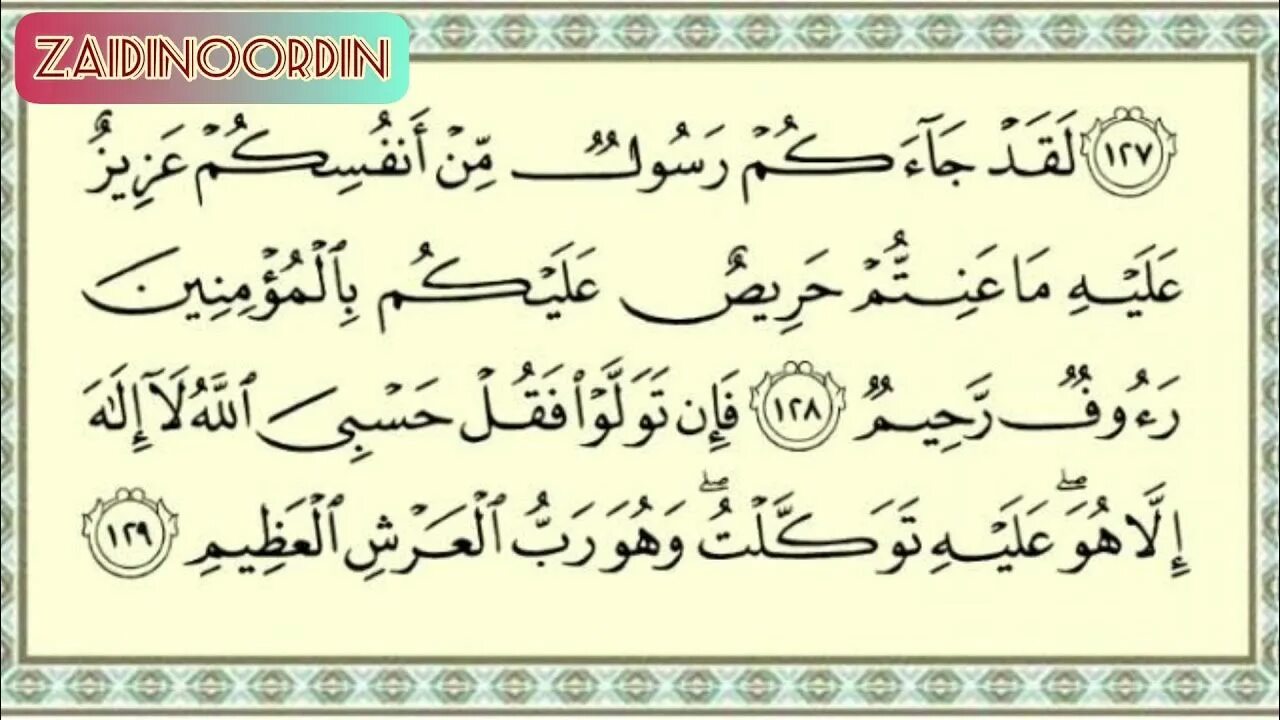 ZAIDINOORDIN
١٢٧ لَقَدۡ جَآءَكُمۡ رَسُولٌ مِّنۡ أَنفُسِكُمۡ عَزِيزٌ
عَلَيۡهِ مَا عَنِتُّمۡ حَرِيصٌ عَلَيۡكُم بِٱلۡمُؤۡمِنِينَ
رَءُوفٌ رَّحِيمٌ ١٢٨ فَإِن تَوَلَّوۡاْ فَقُلۡ حَسۡبِيَ ٱللَّهُ لَآ إِلَٰهَ
إِلَّا هُوَۖ عَلَيۡهِ تَوَكَّلۡتُۖ وَهُوَ رَبُّ ٱلۡعَرۡشِ ٱلۡعَظِيمِ ١٢٩